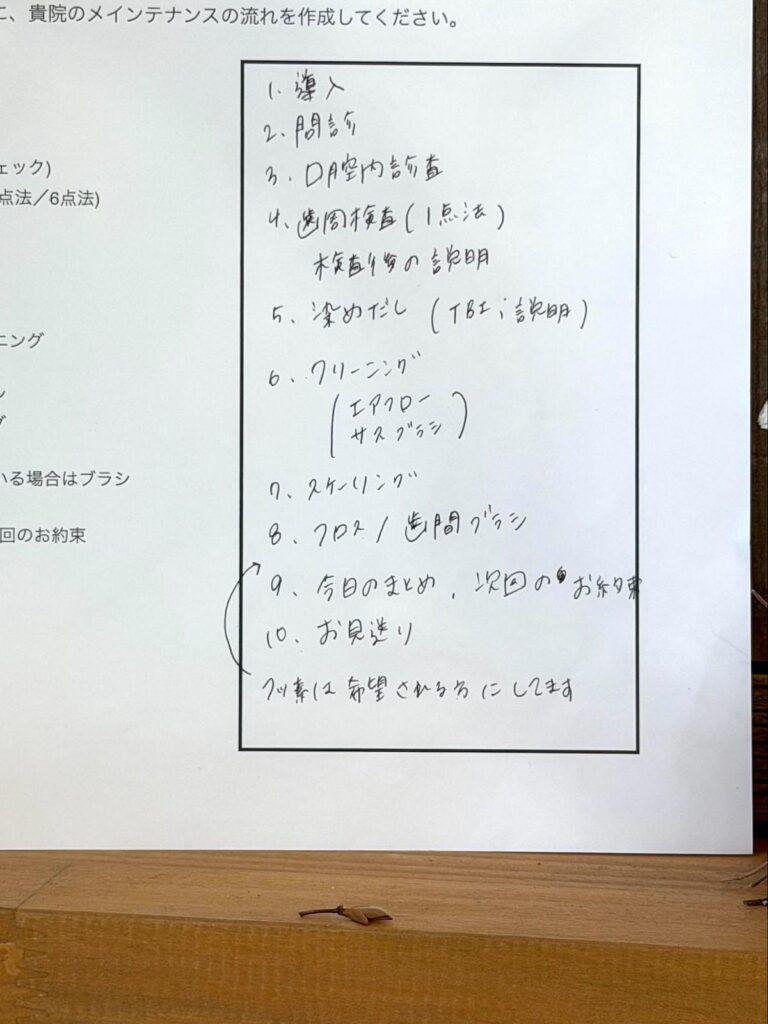 こ、貴院のメインテナンスの流れを作成してください。
ェック)
点法／6点法)
ニング
ン
グ
いる場合はブラシ
回のお約束
1. 導入
2. 問診
3. 口腔内診査
4. 歯周検査(1点法)
検査後の説明
5. 染めだし (TBI; 説明)
6. クリーニング
(エアフロー
サスブラシ)
7. スケーリング
8. フロス/歯間ブラシ
9. 今日のまとめ、次回のお約束
10. お見送り
フッ素は希望される方にしてます